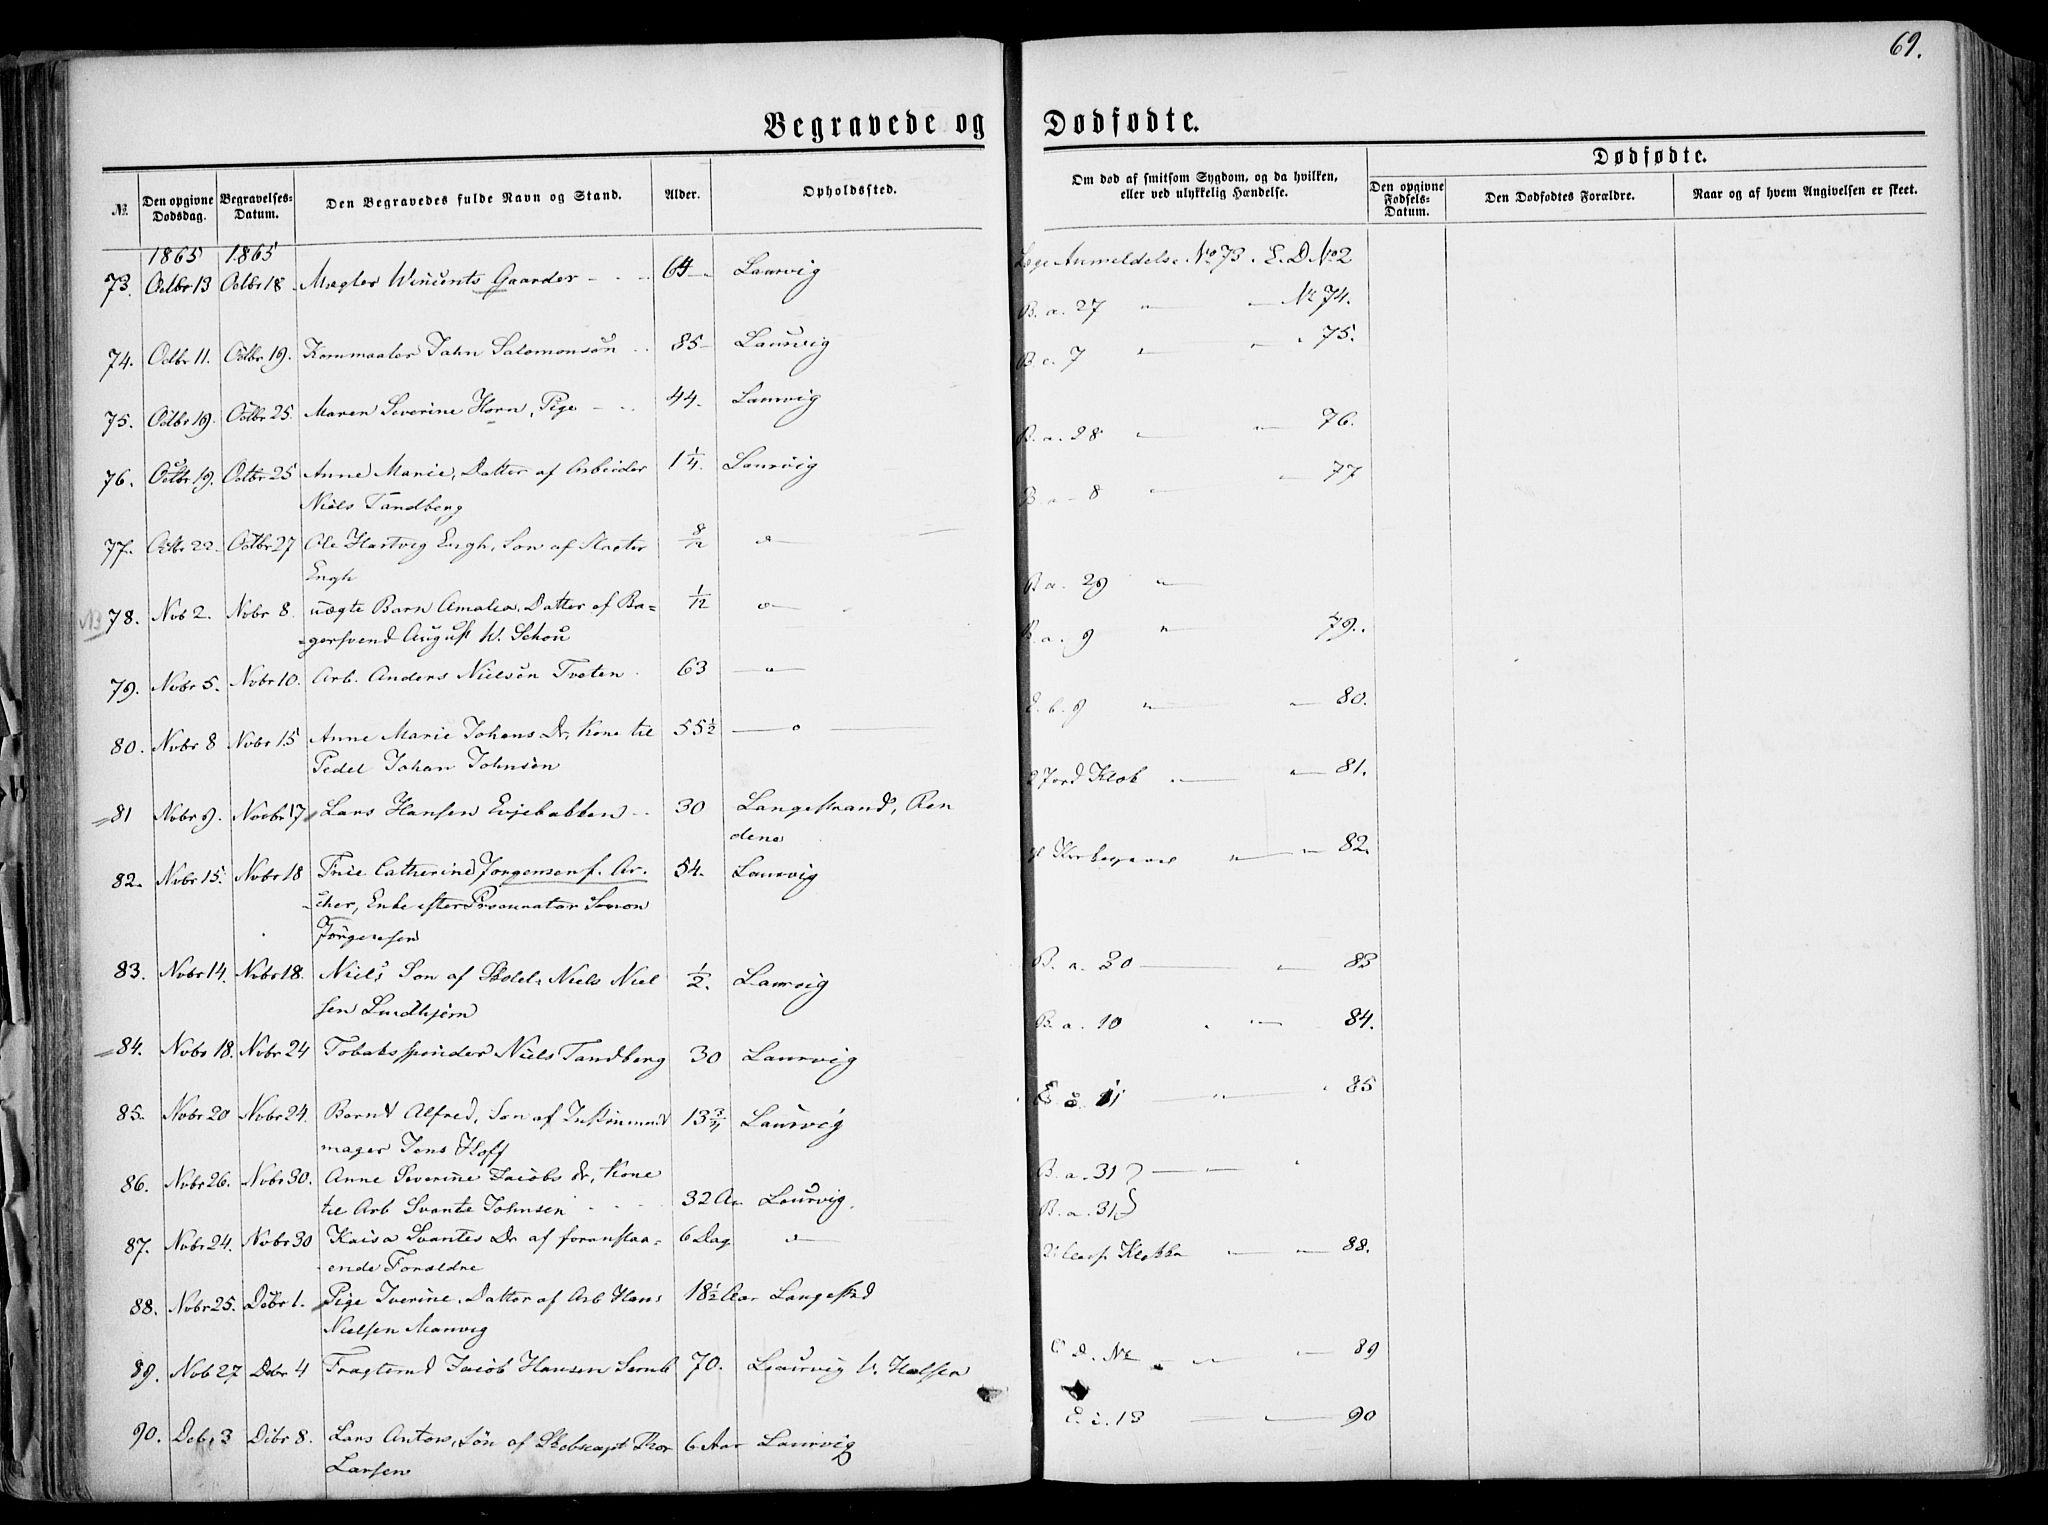 69.
Begravede og Dødfødte.
№
Den opgivne Dødsdag.
Begravelses-Datum.
Den Begravedes fulde Navn og Stand.
Alder.
Opholdssted.
Om død af smitsom Sygdom, og da hvilken, eller ved ulykkelig Hændelse.
Dødfødte.
Den opgivne Fødsels-Datum.
Den Dødfødtes Forældre.
Naar og af hvem Angivelsen er skeet.
1865 1865
73. Octbr 13 Octbr 18 Mægler Wincents Gaarder 64 Laurvig Læge Anmeldelse No 73. E. D No 2
74. Octbr 11. Octbr 19. Jahn Salomonsøn 85 Laurvig B. a. 27 " No 74.
75. Octbr 19. Octbr 25. Maren Severine Horn, Pige 44. Laurvig B. c. 7 " " 75.
76. Octbr 19. Octbr 25 Anne Marie, Datter af Arbeider 1 1/4. Laurvig B. a. 28 " " 76.
Niels Tandberg
77. Octbr 22. Octbr 27 Ole Hartvig Engh, Søn af Slagter 8/12 " B a 8 " " 77
Engh
78. Nov 2. Novbr 8 uægte Barn Amalia, Datter af Ba= 1/12 " B a. 29 "
=gersvend August W. Schou
79. Novbr 5. Novbr 10. Arb. Anders Nielsen Tveten 63 " B. a. 9 " 79.
80. Novbr 8 Novbr 15 Anne Marie Johans Dr, Kone til 55 1/2 " b. 9 " " 80.
Pedel Johan Johnsen
81 Novbr 9. Novbr 17 Lars Hansen 30 Langestrand, Ren Jord Klok " " 81.
dene
82. Novbr 15. Novbr 18 Cathrine Jørgensen f. Ar= 54. Laurvig " " 82.
cher, Enke efter Procurator Simon
Jørgensen
83. Novbr 14. Novbr 18. Niels, Søn af Niels Niel 1/2. Laurvig B. a. 30 " 83
sen
84. Novbr 18. Novbr 24 Tobaksspinder Niels Tandberg 30 Laurvig B. a. 10 " 84.
85. Novbr 20 Novbr 24. Bernt Alfred, Søn af Instrument 13 Laurvig " " 85
mager Jens Hoff
86. Novbr 26. Novbr 30. Anne Severine Jacobs dr, Kone B. a. 31 " "
til Arb Svante Johnsen 32 Aar Laurvig.
87. Novbr 24. Novbr 30 Kaisa Svantes Dr af foranstaa= 6 Dag " B. a. 31
ende Forældre
88. Novbr 25. Decbr 1. Pige Iverine, Datter af Arb Hans 18 1/2 Aar Langestrd " " 88.
Nielsen Manvig
89. Nov 27 Decbr 4 Fragtemd Jacob Hansen Semb 70. Laurvig V. Halsen " " 89
90. Deb. 3 Debr 8. Lars Anton, Søn af Skibscapt Thor 6 Aar Laurvig E. c. 13 " 90
Larsen